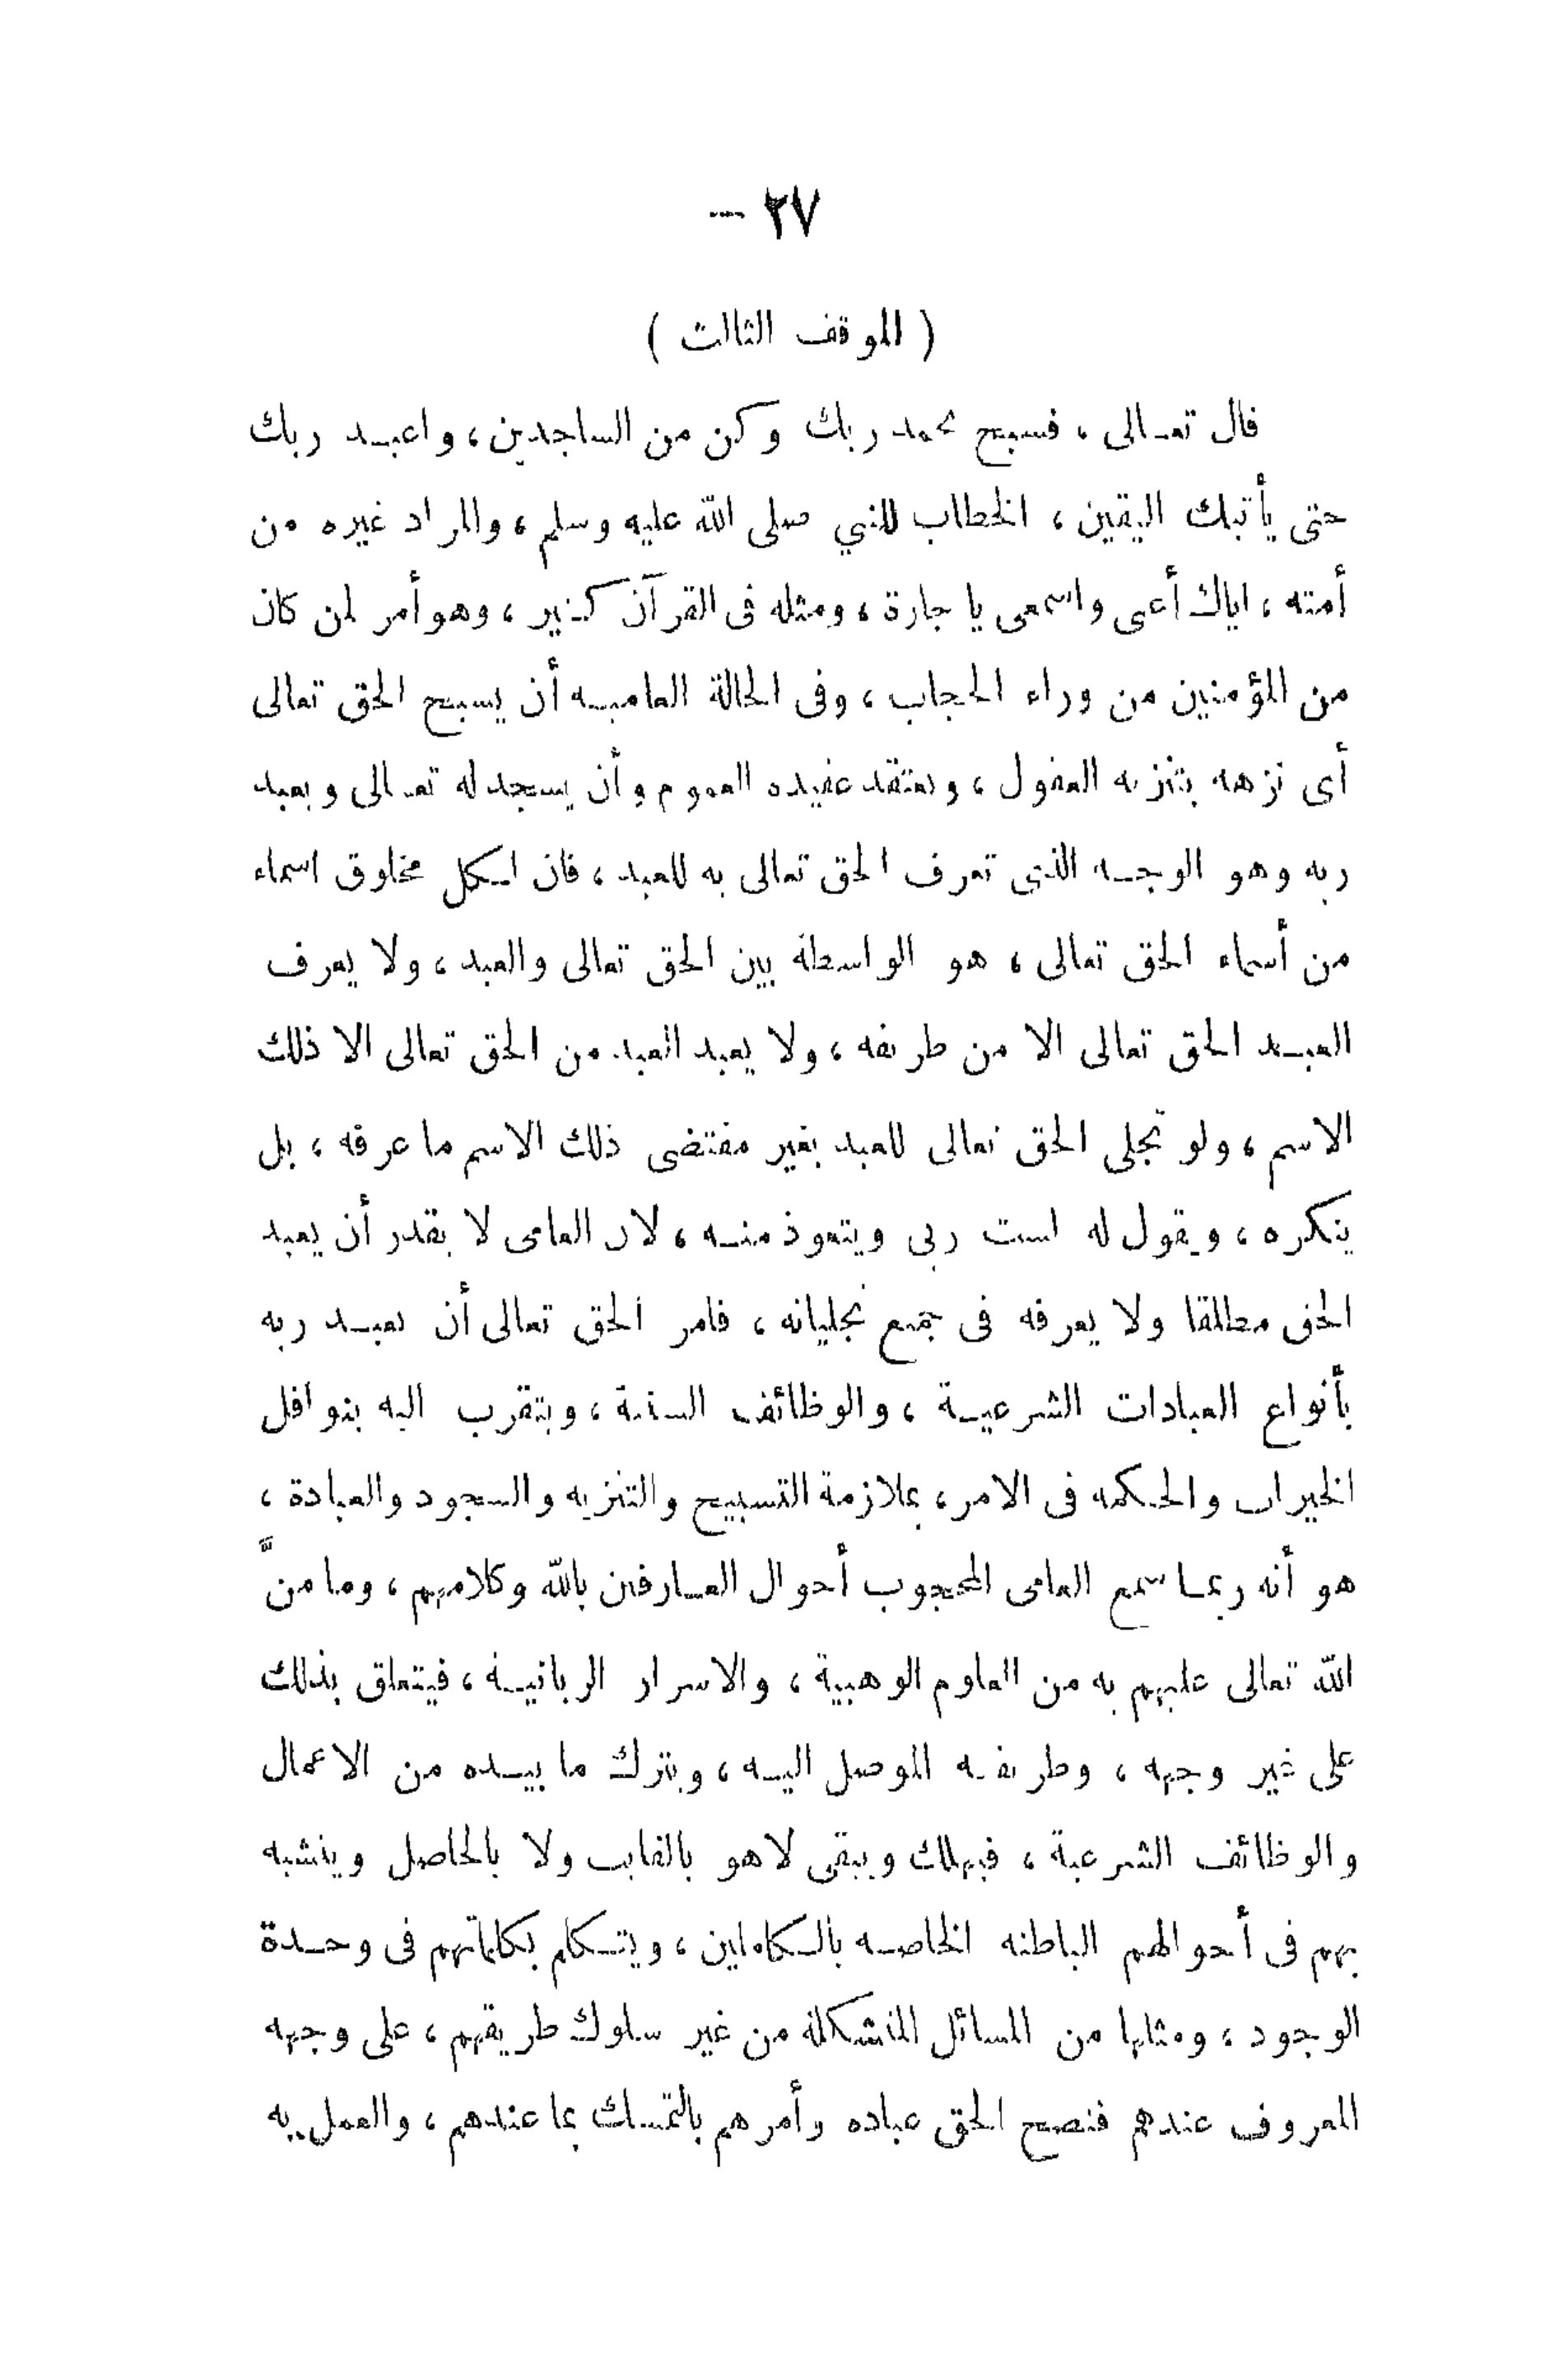 ٢٧ —
( الموقف الثالث )
قال تعالى ، فسبح بحمد ربك وكن من الساجدين ، واعبد ربك
حتى يأتيك اليقين ، الخطاب للنبي صلى الله عليه وسلم ، والمراد غيره من
أمته ، اياك أعنى واسمعى يا جارة ، ومثله فى القرآن كثير ، وهو أمر لمن كان
من المؤمنين من وراء الحجاب ، وفى الحالة العامية أن يسبح الحق تعالى
أى نزهه بتنزيه العقول ، ويعتقد عقيدة العموم وأن يسجد له تعالى ويعبد
ربه وهو الوجه الذى تعرف الحق تعالى به للعبد ، فان لكل مخلوق اسماء
من أسماء الحق تعالى ، هو الواسطة بين الحق تعالى والعبد ، ولا يعرف
العبد الحق تعالى الا من طريقه ، ولا يعبد العبد من الحق تعالى الا ذلك
الاسم ، ولو تجلى الحق تعالى للعبد بغير مقتضى ذلك الاسم ما عرفه ، بل
ينكره ، ويقول له لست ربى ويتعوذ منه ، لان العامى لا يقدر أن يعبد
الحق مطلقا ولا يعرفه فى جميع تجلياته ، فامر الحق تعالى أن يعبد ربه
بأنواع العبادات الشرعية ، والوظائف السنية ، ويتقرب اليه بنوافل
الخيرات والحكمة فى الامر ، بملازمة التسبيح والتنزيه والسجود والعبادة ،
هو أنه ربما سمع العامى المحجوب أحوال العارفين بالله وكلامهم ، وما منَّ
الله تعالى عليهم به من العلوم الوهبية ، والاسرار الربانية ، فيتعلق بذلك
على غير وجهه ، وطريقه الموصل اليه ، ويترك ما بيده من الاعمال
والوظائف الشرعية ، فيهلك ويبقى لا هو بالغايب ولا بالحاصل ويتشبه
بهم فى أحوالهم الباطنة الخاصة بالكاملين ، ويتكلم بكلماتهم فى وحدة
الوجود ، ومثلها من المسائل المشكلة من غير سلوك طريقهم ، على وجهه
المعروف عندهم فنصح الحق عباده وأمرهم بالتمسك بما عندهم ، والعمل به